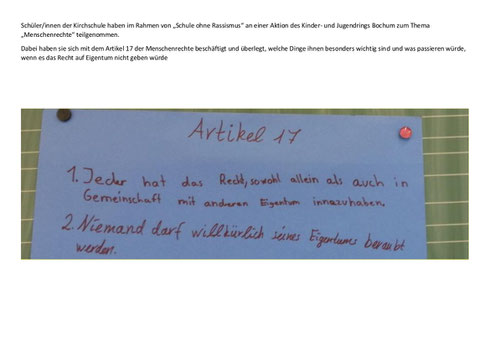 Schüler/innen der Kirchschule haben im Rahmen von „Schule ohne Rassismus“ an einer Aktion des Kinder- und Jugendrings Bochum zum Thema
„Menschenrechte“ teilgenommen.
Dabei haben sie sich mit dem Artikel 17 der Menschenrechte beschäftigt und überlegt, welche Dinge ihnen besonders wichtig sind und was passieren würde,
wenn es das Recht auf Eigentum nicht geben würde
Artikel 17
1. Jeder hat das Recht, sowohl allein als auch in
Gemeinschaft mit anderen Eigentum innezuhaben.
2. Niemand darf willkürlich seines Eigentums beraubt
werden.